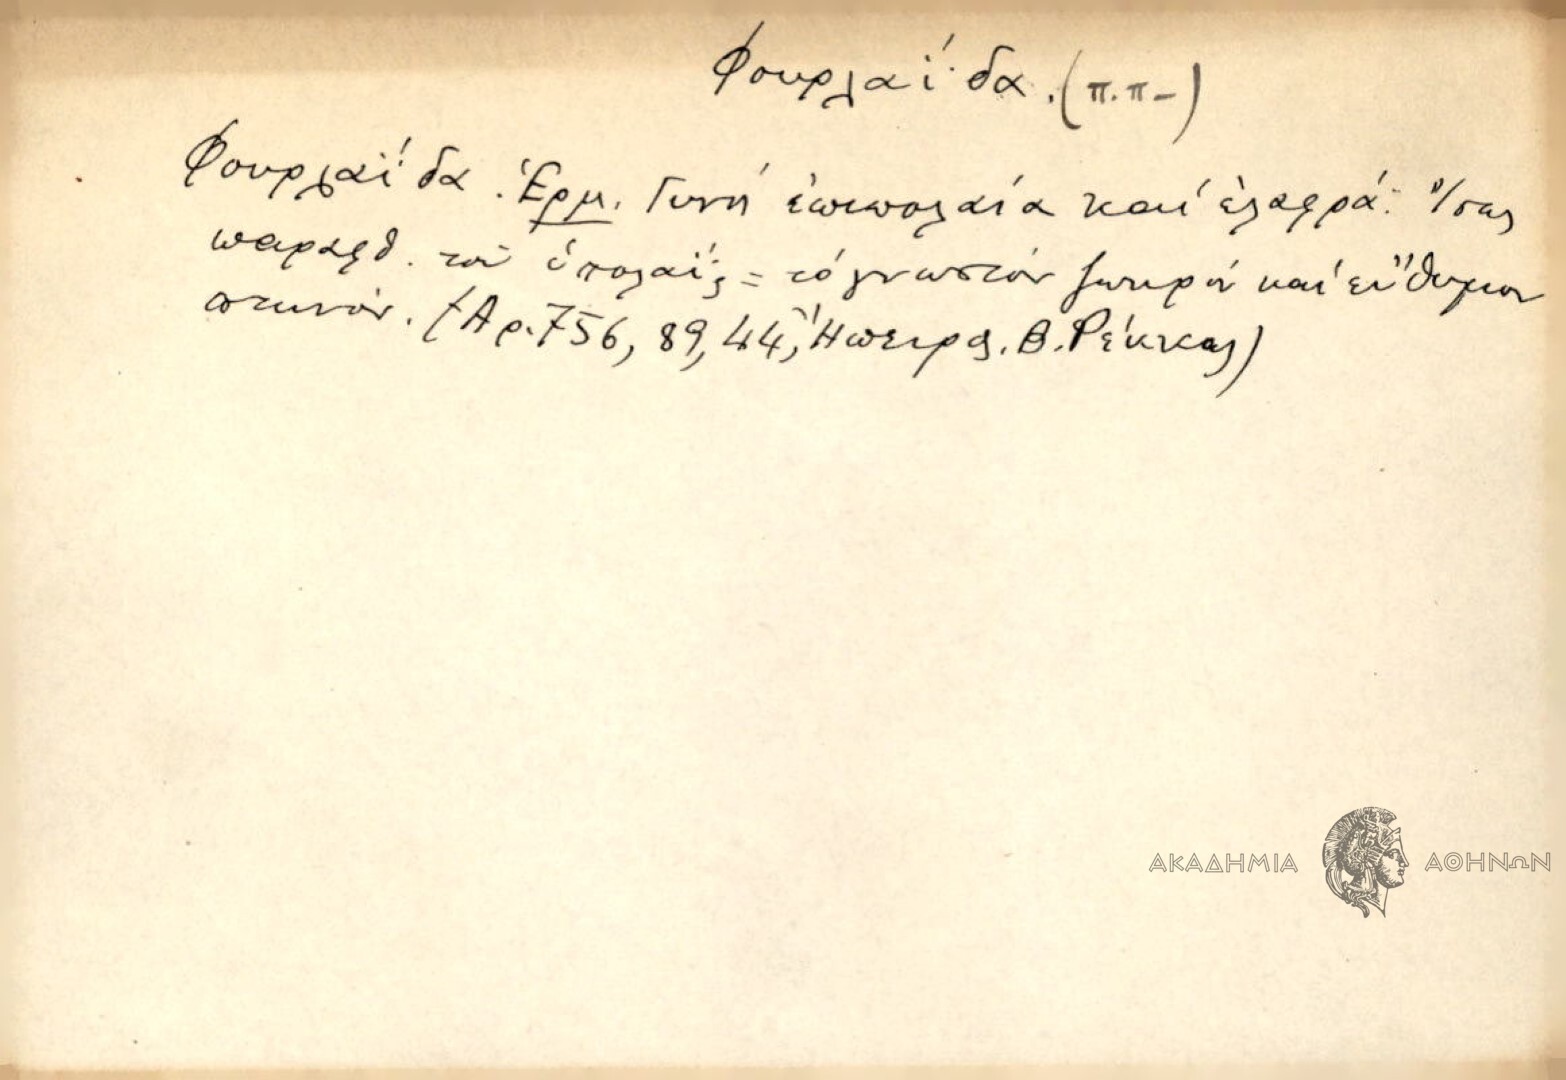 Φουρλαΐδα. (π.π-)
Φουρλαΐδα. Ἑρμ. Γυνή ἐπιπολαία καί ἐλαφρά. Ἴσως
παρεφθ. τοῦ ὑπολαΐς = τό γνωστόν ζωηρόν καί εὔθυμον
πτηνόν. (Αρ. 756, 89, 44, Ἤπειρος. Β. Ρέκκας)
ΑΚΑΔΗΜΙΑ ΑΘΗΝΩΝ